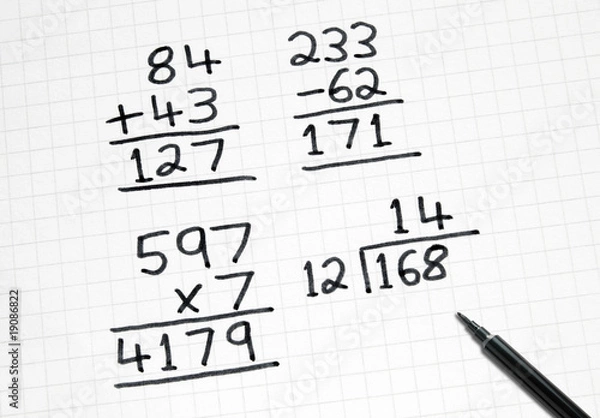 84
+43
127
233
-62
171
597
x7
4179
14
12 168
Adobe Stock | 19086822